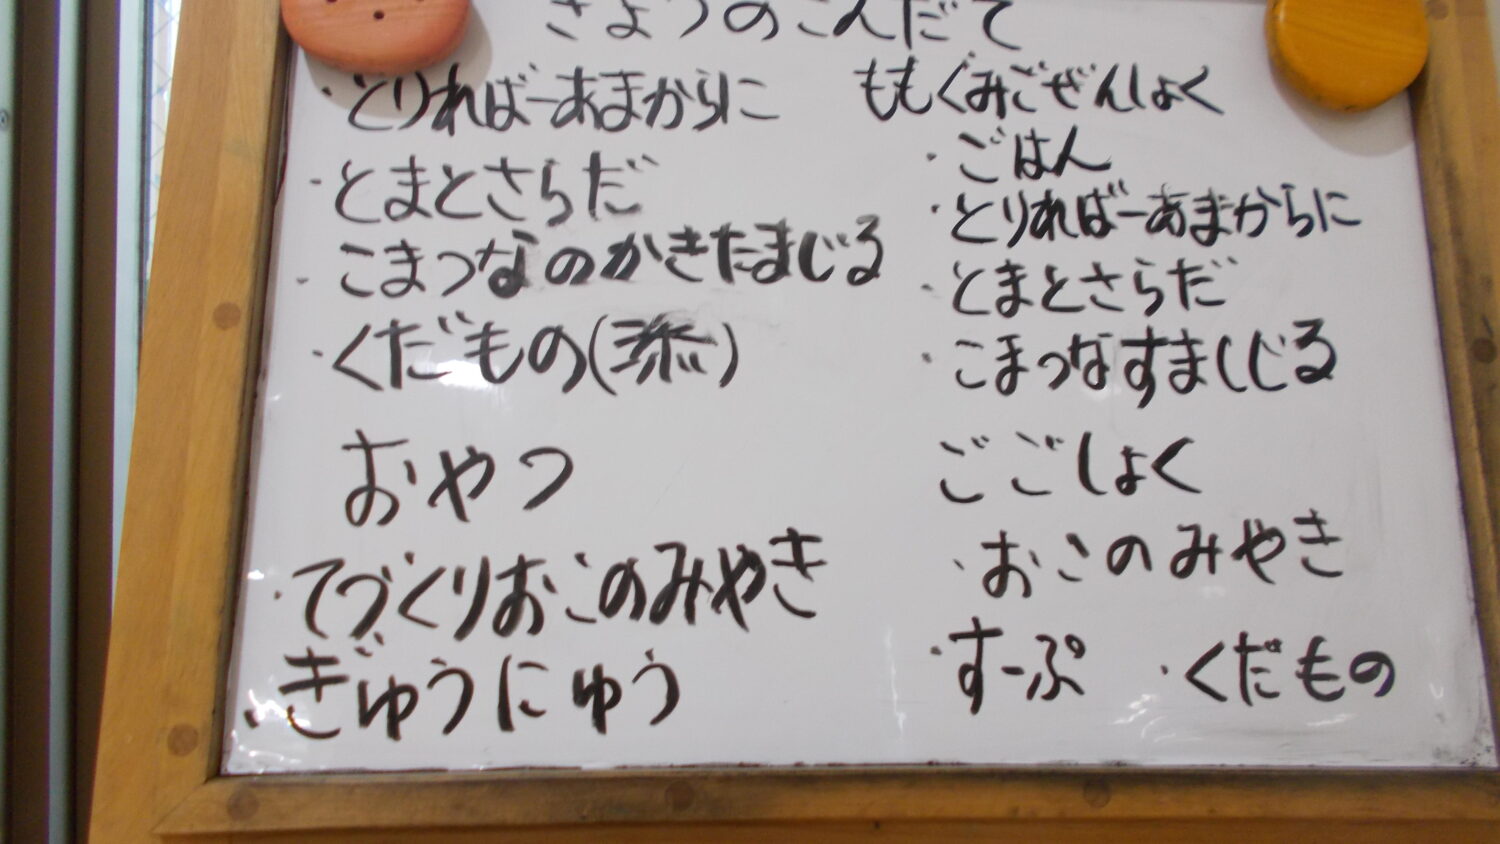 きょうのこんだて
・とりればーあまからに
・とまとさらだ
・こまつなのかきたまじる
・くだもの(添)
おやつ
・てづくりおこのみやき
・ぎゅうにゅう
ももぐみごぜんしょく
・ごはん
・とりればーあまからに
・とまとさらだ
・こまつなすましじる
ごごしょく
・おこのみやき
・すーぷ ・くだもの